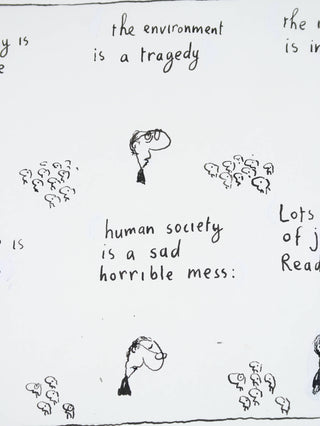 y is
e
the environment
is a tragedy
the
is in
is
human society
is a sad
horrible mess:
Lots
of j
Read